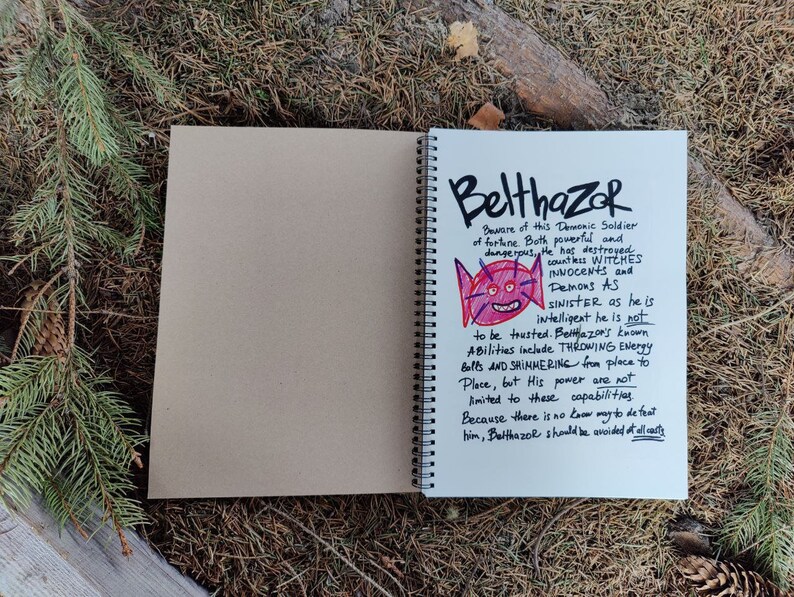 BelthazoR
Beware of this Demonic Soldier
of fortune. Both powerful and
dangerous, He has destroyed
countless WITCHES
INNOCENTS and
Demons AS
SINISTER as he is
intelligent he is not
to be trusted. Belthazor's known
Abilities include THROWING Energy
Balls AND SHIMMERING from place to
Place, but His power are not
limited to these capabilities.
Because there is no know way to defeat
him, BelthazoR should be avoided at all costs